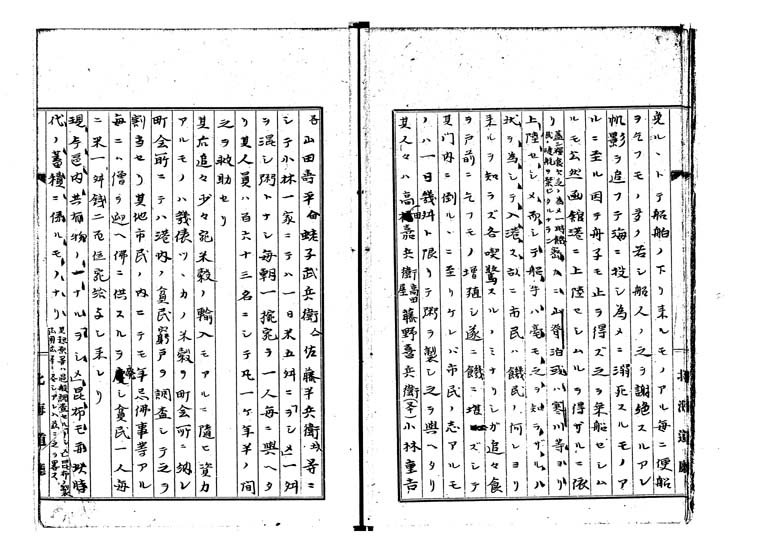 見ルヽトテ船舶ノ下リ来ルモノアル毎ニ便船
ヲ乞フモノ多ク若シ船人ノ之ヲ謝絶スルアレハ
帆影ヲ追フテ海ニ投シ為メニ溺死スルモノア
ルニ至ル因テ舟子モ止ヲ得ズ之ヲ乗船セシム
ルモ公然函館港ニ上陸セシムルヲ得ザルニ依
リ 山脊泊或ハ寒川等ヨリ
上陸セシメ而シテ船手ハ毫モ之ヲ知ラザルノ
状ヲ為シテ入港ス故ニ市民ハ饑民ノ何レヨリ
来ルヲ知ラズ各喫驚スルノミナリシガ追々食
ヲ戸前ニ乞フモノ増殖シ遂ニ饑ニ堪ズシテ
其門内ニ倒ルヽニ至リケレバ市民ノ志アルモ
ノハ一日幾舛ト限リテ粥ヲ製シ之ヲ與ヘタリ
其人々ハ高田嘉兵衛 高田屋 藤野喜兵衛 小林重吉
山田壽平 蛯子武兵衛 佐藤半兵衛等ニ
シテ小林一家ニテハ一日米五舛ニヲシメ一舛
ヲ混シ粥トナシ毎朝一椀宛ヲ一人毎ニ與ヘタ
リ其人員ハ百六十三名ニシテ凡一ケ年半ノ間
之ヲ救助セリ
其后追々少々宛米穀ノ輸入モアルニ隨ヒ資力
アルモノハ幾俵ツヽカノ米穀ヲ町会所ニ納レ
町会所ニテハ港内ノ貧民窮戸ヲ調査シテ之ヲ
割与セリ其地市民ノ内ニテモ年忌佛事等アル
毎ニハ僧ヲ迎ヘ佛ニ供スルヲ廢シ貧民一人毎
ニ米一舛銭二百位宛給与シ来レリ
現今邑内共有物ノ一ナルヲシメ昆布モ亦此時
代ノ蓄積ニ係ルモノナリ
北海道廳
北海道廳